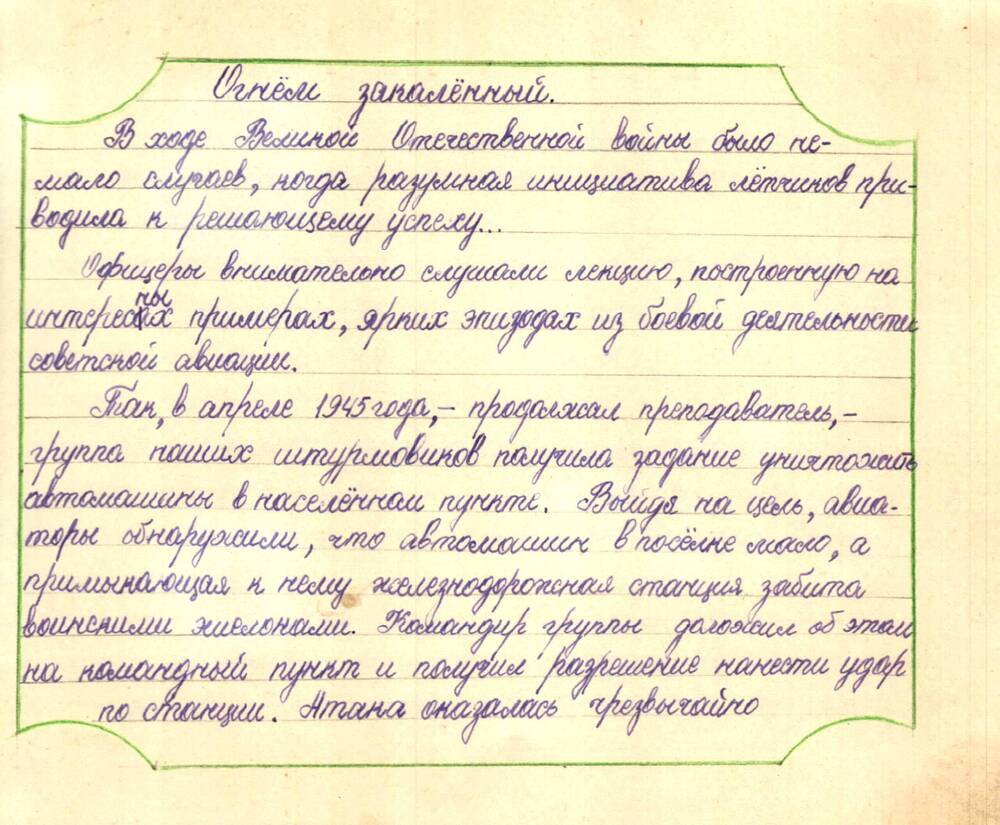 Огнём закалённый.
В ходе Великой Отечественной войны было не-
мало случаев, когда разумная инициатива лётчиков при-
водила к решающему успеху...
Офицеры внимательно слушали лекцию, построенную на
интересных примерах, ярких эпизодах из боевой деятельности
советской авиации.
Так, в апреле 1945 года,- продолжал преподаватель,-
группа наших штурмовиков получила задание уничтожить
автомашины в населённом пункте. Выйдя на цель, авиа-
торы обнаружили, что автомашин в посёлке мало, а
примыкающая к нему железнодорожная станция забита
воинскими эшелонами. Командир группы доложил об этом
на командный пункт и получил разрешение нанести удар
по станции. Атака оказалась чрезвычайно